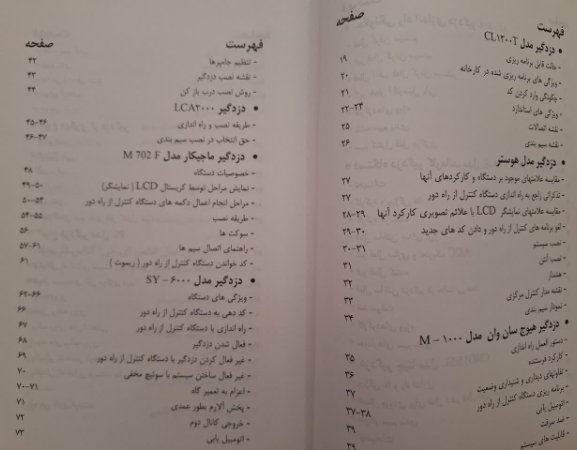 فهرست
صفحه
• دزدگیر مدل CL1200T
- حالت قابل برنامه ریزی ۱۹
- ویژگی های برنامه ریزی شده در کارخانه ۲۰
- چگونگی وارد کردن کد ۲۱
- ویژگی های استاندارد ۲۲-۲۴
- نقشه اتصالات ۲۵
- نقشه سیم بندی ۲۶
• دزدگیر مدل هوستر
- مقایسه علامتهای موجود بر دستگاه و کارکردهای آنها ۲۷
- تذکراتی راجع به راه اندازی دستگاه کنترل از راه دور ۲۷
- مقایسه علامتهای نمایشگر LCD با علائم تصویری کارکرد آنها ۲۸-۲۹
- لغو برنامه های کنترل از راه دور و دادن کد های جدید ۲۹-۳۰
- نصب سیستم ۳۰-۳۱
- نصب آنتن ۳۱
- هشدار ۳۲
- نقشه مدار کنترل مرکزی ۳۳
- نمودار سیم بندی ۳۴
• دزدگیر هیوج سان وان مدل M – ۱۰۰۰
- دستور العمل راه اندازی ۳۵
- کارکرد فرستنده ۳۶
- تفاوتهای دیداری و شنیداری وضعیت ۳۷
- برنامه ریزی دستگاه کنترل از راه دور ۳۷-۳۸
- اتومبیل یابی
- ضد سرقت ۳۹
- قابلیت های سیستم ۳۹
فهرست
صفحه
- تنظیم جامپرها ۴۲
- نقشه نصب دزدگیر ۴۳
- روش نصب درب باز کن ۴۴
• دزدگیر LCA۲۰۰۰
- طریقه نصب و راه اندازی ۴۵-۴۶
- حق انتخاب در نصب سیم بندی ۴۶-۴۷
• دزدگیر ماجیکار مدل M 702 F
- خصوصیات دستگاه ۴۸
- نمایش مراحل توسط کریستال LCD ( نمایشگر) ۴۹-۵۰
- مراحل انجام اعمال دکمه های دستگاه کنترل از راه دور ۵۰-۵۴
- طریقه نصب ۵۴-۵۵
- سوکت ها ۵۶
- راهنمای اتصال سیم ها ۵۷-۶۱
- کد خواندن دستگاه کنترل از راه دور ( ریموت ) ۶۱
• دزدگیر مدل SY – ۶۰۰۰
- ویژگی های دستگاه ۶۲-۶۶
- کد دهی به دستگاه کنترل از راه دور ۶۶
- راه اندازی با دستگاه کنترل از راه دور ۶۷
- فعال شدن دزدگیر ۶۸
- غیر فعال کردن دزدگیر با دستگاه کنترل از راه دور ۶۹
- غیر فعال ساختن سیستم با سوئیچ مخفی ۷۰
- اعزام به تعمیر گاه ۷۰-۷۱
- پخش آلارم بطور عمدی ۷۱
- خروجی کانال دوم ۷۲
- اتومبیل یابی ۷۳